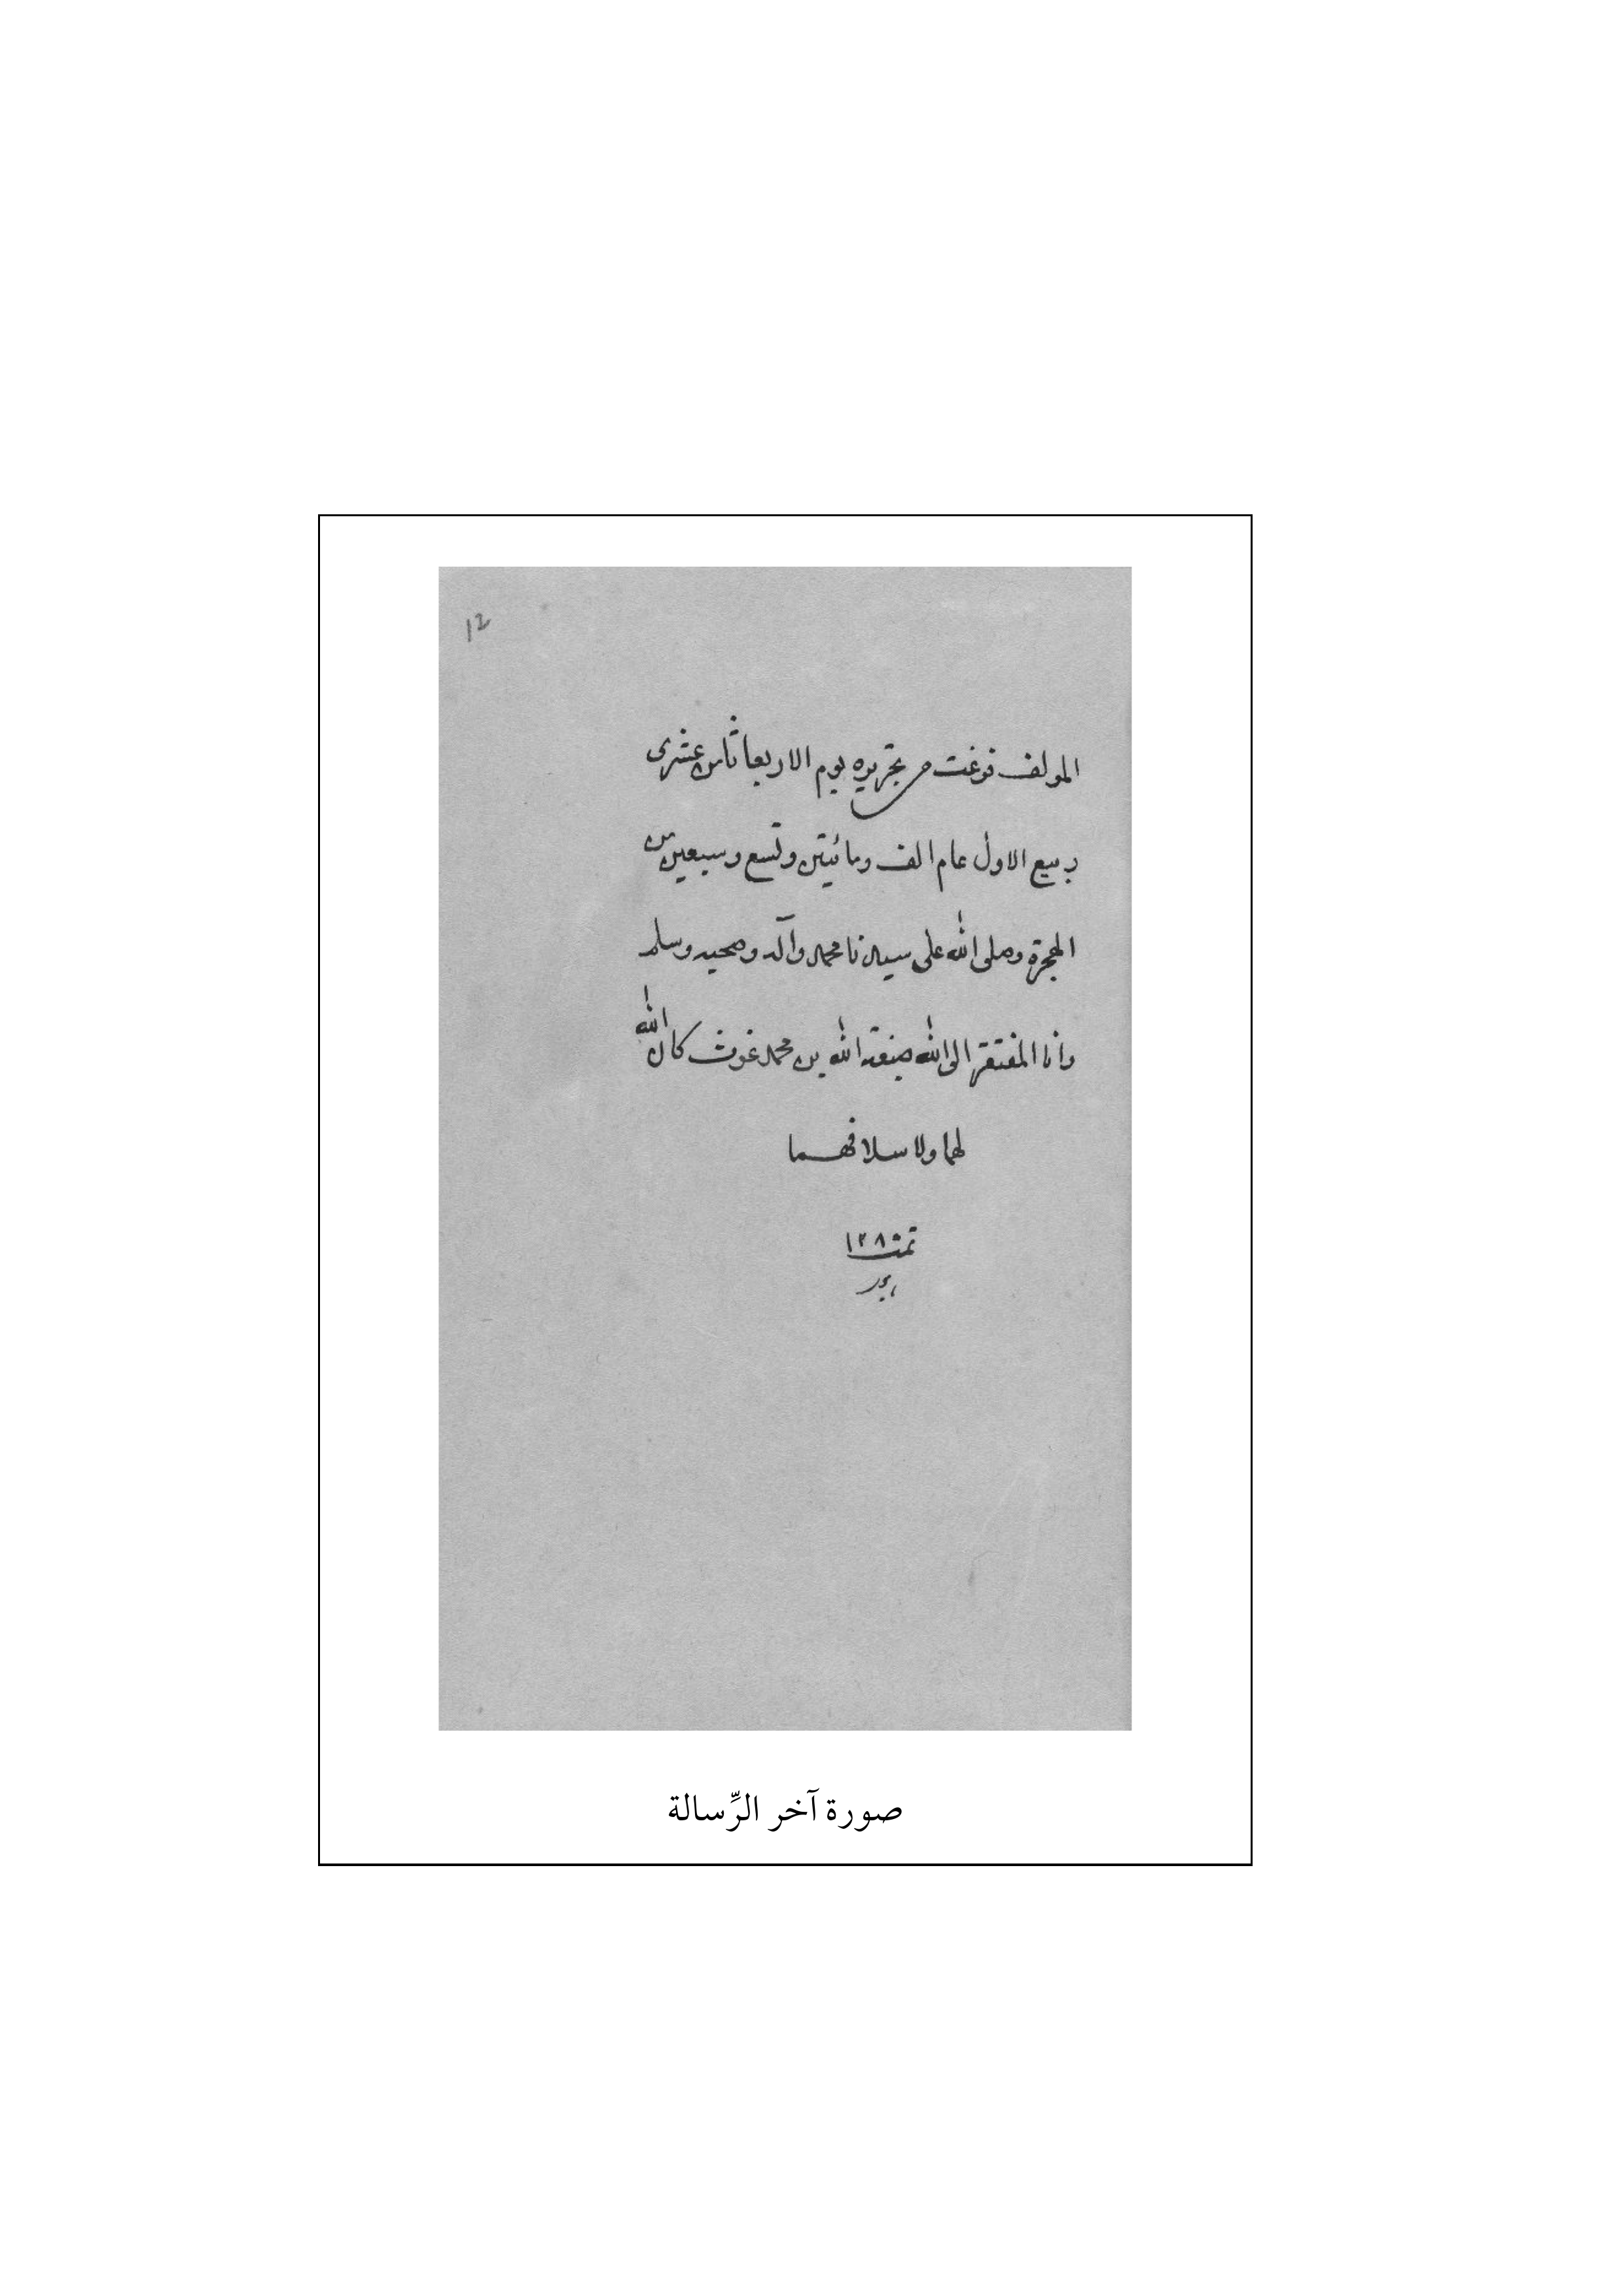 12
المولف فرغت من تحريره يوم الاربعا ثامن عشرى
ربيع الاول عام الف ومائيتين وتسع وسبعين من
الهجرة وصلى الله على سيدنا محمد وآله وصحبه وسلم
وانا المفتقر الى الله صبغة الله بن محمد غوث كان الله
لهما ولاسلافهما
تمت ١٢٨٥
صورة آخر الرِّسالة